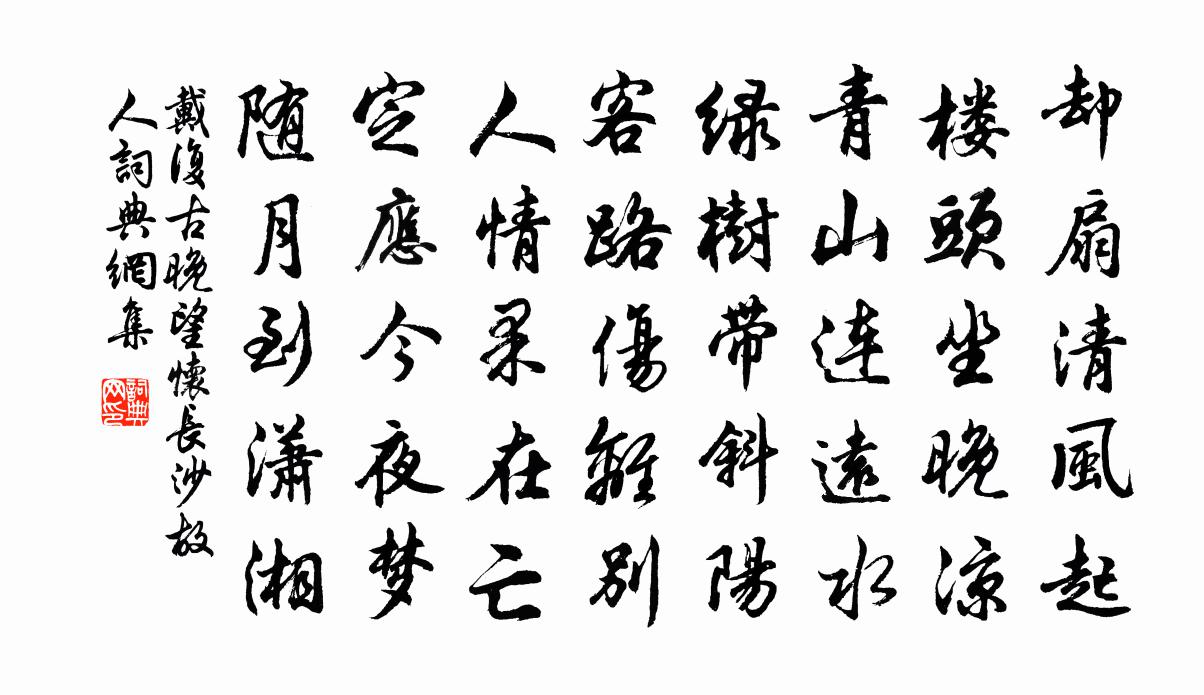 却扇清風起
楼頭坐晚涼
青山連遠水
緑樹帶斜陽
客路傷離别
人情在亡
定應今夜梦
随月到瀟湘
戴復古晚望懷長沙故
人詞典網集
詞典网印